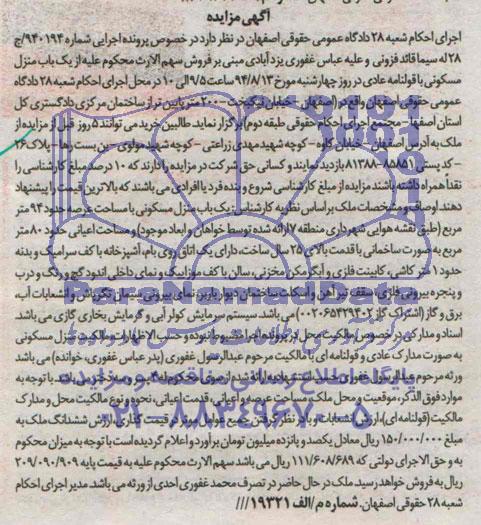 آگهی مزایده
اجرای احکام شعبه ۲۸ دادگاه عمومی حقوقی اصفهان در نظر دارد در خصوص پرونده اجرایی شماره ۹۴۰۱۹۴/ج
۲۸ له سیما قائد فزونی و علیه عباس غفوری یزدآبادی مبنی بر فروش سهم الارث محکوم علیه از یک باب منزل
مسکونی با قولنامه عادی در روز چهارشنبه مورخ ۹۴/۸/۱۳ ساعت ۹/۵ الی ۱۰ در محل اجرای احکام شعبه ۲۸ دادگاه
عمومی حقوقی اصفهان واقع در (اصفهان - خیابان نیکبخت - ۲۰۰ متر پایین تر از ساختمان مرکزی دادگستری کل
استان اصفهان - مجتمع اجرای احکام حقوقی طبقه دوم) برگزار نماید. طالبین خرید می توانند ۵ روز قبل از مزایده از
ملک به آدرس اصفهان - خیابان کاوه - کوچه شهید مهدی زراعتی - کوچه شهید مولوی - بن بست رها - پلاک ۲۶
- کد پستی ۸۵۸۵۱-۸۱۳۸۸ بازدید نمایند و کسانی حق شرکت در مزایده را دارند که ۱۰ درصد مبلغ کارشناسی را
نقداً همراه داشته باشند مزایده از مبلغ کارشناسی شروع و برنده فرد یا افرادی می باشند که بالاترین قیمت را پیشنهاد
دهند. اوصاف و مشخصات ملک بر اساس نظریه کارشناس: یک باب منزل مسکونی با مساحت عرصه حدود ۹۴ متر
مربع (طبق نقشه هوایی شهرداری منطقه ۷ ارائه شده توسط خواهان و ابعاد موجود) و مساحت اعیانی حدود ۸۰ متر
مربع به صورت ساختمانی با قدمت بالای ۲۵ سال ساخت، دارای یک اتاق روی بام، آشپزخانه با کف سرامیک و بدنه
حدود ۱ متر کاشی، کابینت فلزی و آبگرمکن مخزنی، سالن با کف موزائیک و نمای داخلی اندود گچ و رنگ و درب
و پنجره بیرونی فلزی، سقف تیرآهن و اسکلت ساختمان دیوار باربر، نمای بیرونی سیمان تگرپاش و انشعابات آب،
برق و گاز (اشتراک گاز ۰۰۲۰۶۵۴۲۹۴۰۲) می باشد. سیستم سرمایش کولر آبی و گرمایش بخاری گازی می باشد.
اسناد و مدارکی در خصوص مالکیت محل در پرونده اجرا مشبوط نبوده و حسب الاظهارات مالکیت منزل مسکونی
به صورت مدارک عادی و قولنامه ای با مالکیت مرحوم عبدالرسول غفوری (پدر عباس غفوری، خوانده) می باشد
ورثه مرحوم عبدالرسول غفوری
موارد فوق الذکر، موقعیت و محل ملک، مساحت عرصه و اعیانی، قدمت اعیانی، نحوه و نوع مالکیت محل و مدارک
مالکیت (قولنامه ای)، ارزش انشعابات و با در نظر گرفتن جمیع عوامل موثر در قیمت گذاری، ارزش ششدانگ ملک به
مبلغ ۱۵۰/۰۰۰/۰۰۰ ریال معادل یکصد و پانزده میلیون تومان برآورد و اعلام گردیده است با توجه به میزان محکوم
به و حق الاجرای دولتی که ۱۱۱/۶۰۸/۶۸۹ ریال می باشد سهم الارث محکوم علیه به قیمت پایه ۲۰۹/۰۹۰/۹۰۹
ریال به فروش خواهد رسید. ملک در حال حاضر در تصرف محمد غفوری احدی از ورثه می باشد. مدیر اجرای احکام
شعبه ۲۸ حقوقی اصفهان. شماره م/الف ۱۹۳۲۱///
ParsNamadData
پایگاه اطلاع رسانی مناقصه و مزایده
۰۲۱-۸۸۳۴۹۶۷۰-۵